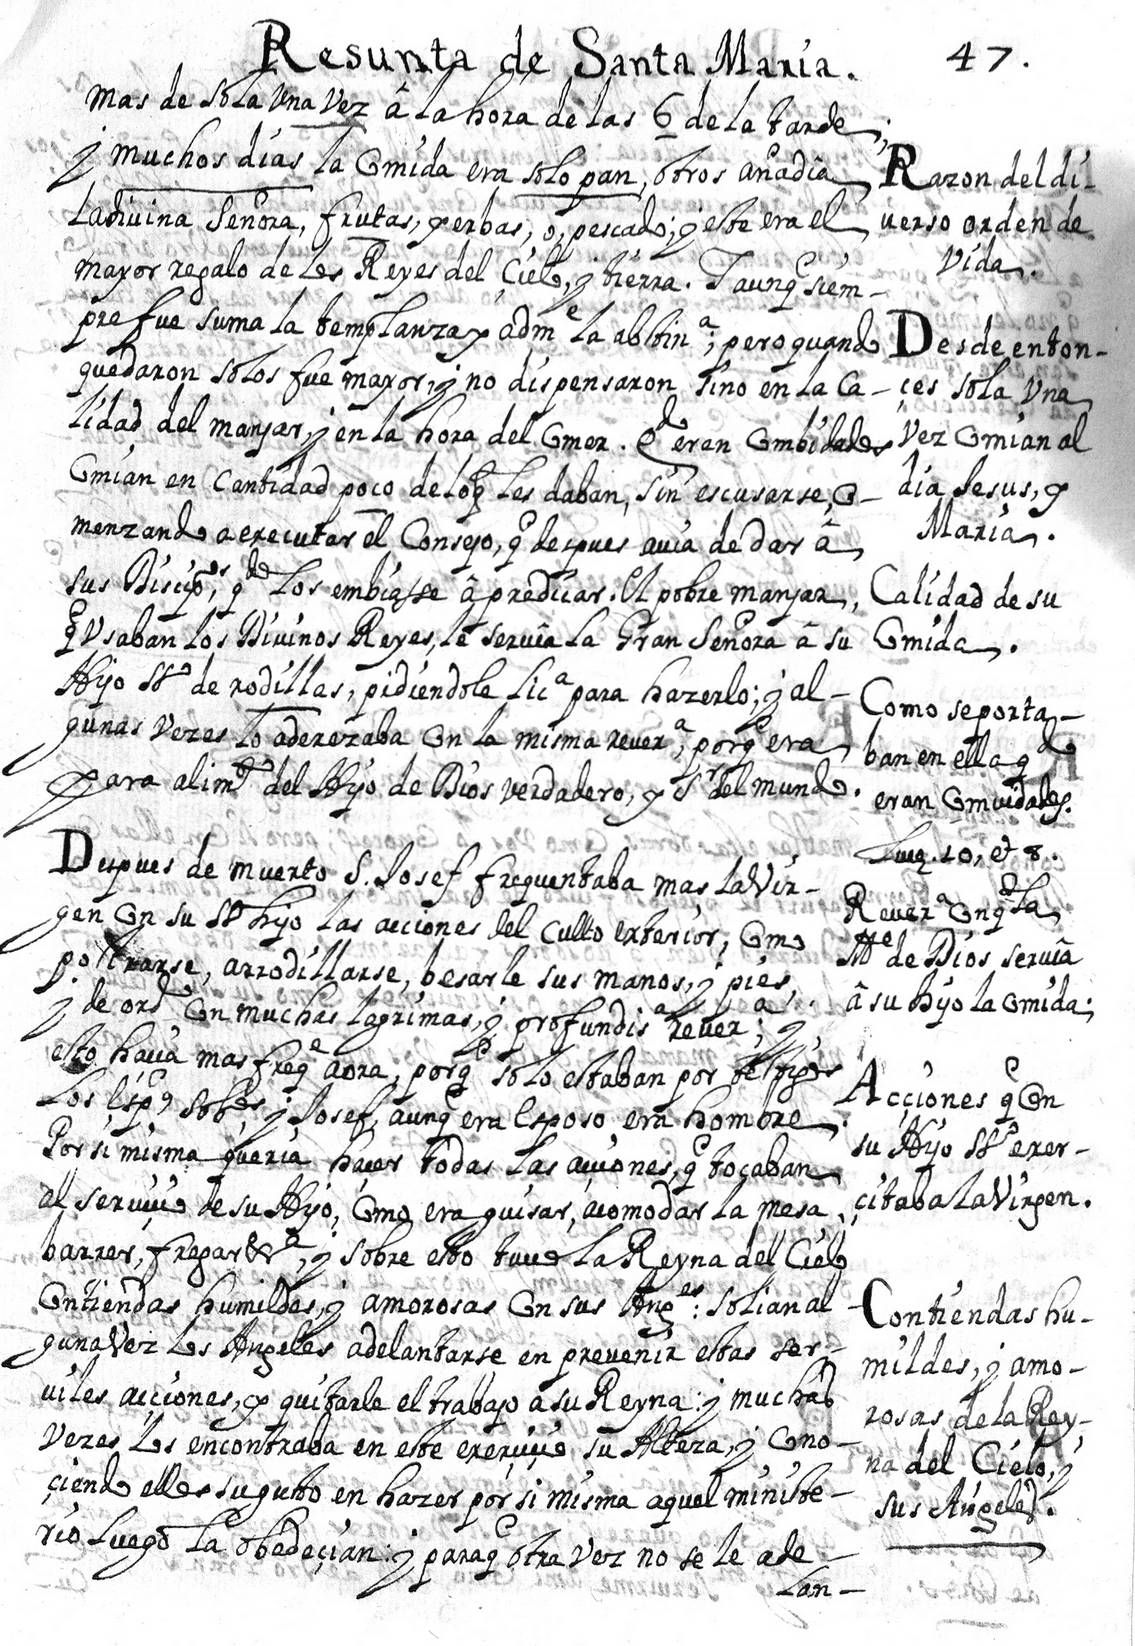 Resunta de Santa Maria. 47.
mas de sola Una Vez â la hora de las 6 de la tarde,
j muchos dias la Comida era solo pan, otros añadia
la divina Señora, frutas, yerbas, o, pescado; y este era el
mayor regalo de los Reyes del Cielo, y tierra. Y aunq̃ siem-
pre fue suma la templanza y adme la abstina; pero quando
quedaron solos fue mayor, y no dispensaron sino en la ca-
lidad del manjar, j en la hora del Comer. Qdo eran Combidados
Comian en cantidad poco de loq̃ les daban, sin escusarse, Co-
menzando a executar el Consejo, q̃ despues avia de dar â
sus Discipos, qdo los embiasse â predicar. El pobre manjar,
q̃ Usaban los Divinos Reyes, le servia la Gran Señora â su
Hijo SSo de rodillas, pidiendole lica para hazerlo; y al-
gunas Vezes lo aderezaba Con la misma revera, porq̃ era
para alimto del Hijo de Dios verdadero, y Sr del mundo.
Despues de muerto S. Josef frequentaba mas la Vir-
gen Con su SSo hijo las acciones del culto exterior, Como
postrarse, arrodillarse, besarle sus manos, y pies,
j de ordo Con muchas lagrimas, y profundisa revera; y
esto hacia mas freqe aora, porq̃ solo estaban por testigos
los Espus Sobos, y Josef, aunq̃ era Esposo era hombre.
Por si misma queria hacer todas las acciones, q̃ tocaban
al servicio de su Hijo, Como era guisar, acomodar la mesa,
barrer, fregar &a, y sobre esto tuvo la Reyna del Cielo
Contiendas humildes, y amorosas Con sus Anges: solian al-
guna Vez los Angeles adelantarse en prevenir estas ser-
viles acciones, y quitarle el trabajo a su Reyna: y muchas
Vezes los encontraba en este exercicio su Alteza, y Cono-
ciendo ellos su gusto en hazer por si misma aquel ministe-
rio luego la obedecian: y paraq̃ otra Vez no se le ade-
lan-
Razon del di-
verso orden de
Vida.
Desde enton-
ces sola Una
Vez Comian al
dia Jesus, y
Maria.
Calidad de su
Comida.
Como seporta-
ban en ella qdo
eran Comvidados.
Luq. 10, et 8.
Revera Conq̃ la
Me de Dios servia
â su hijo la Comida;
Acciones q̃ Con
su Hijo SSo exer-
citaba la Virgen.
Contiendas hu-
mildes, y amo-
rosas de la Rey-
na del Cielo, y
sus Angeles.